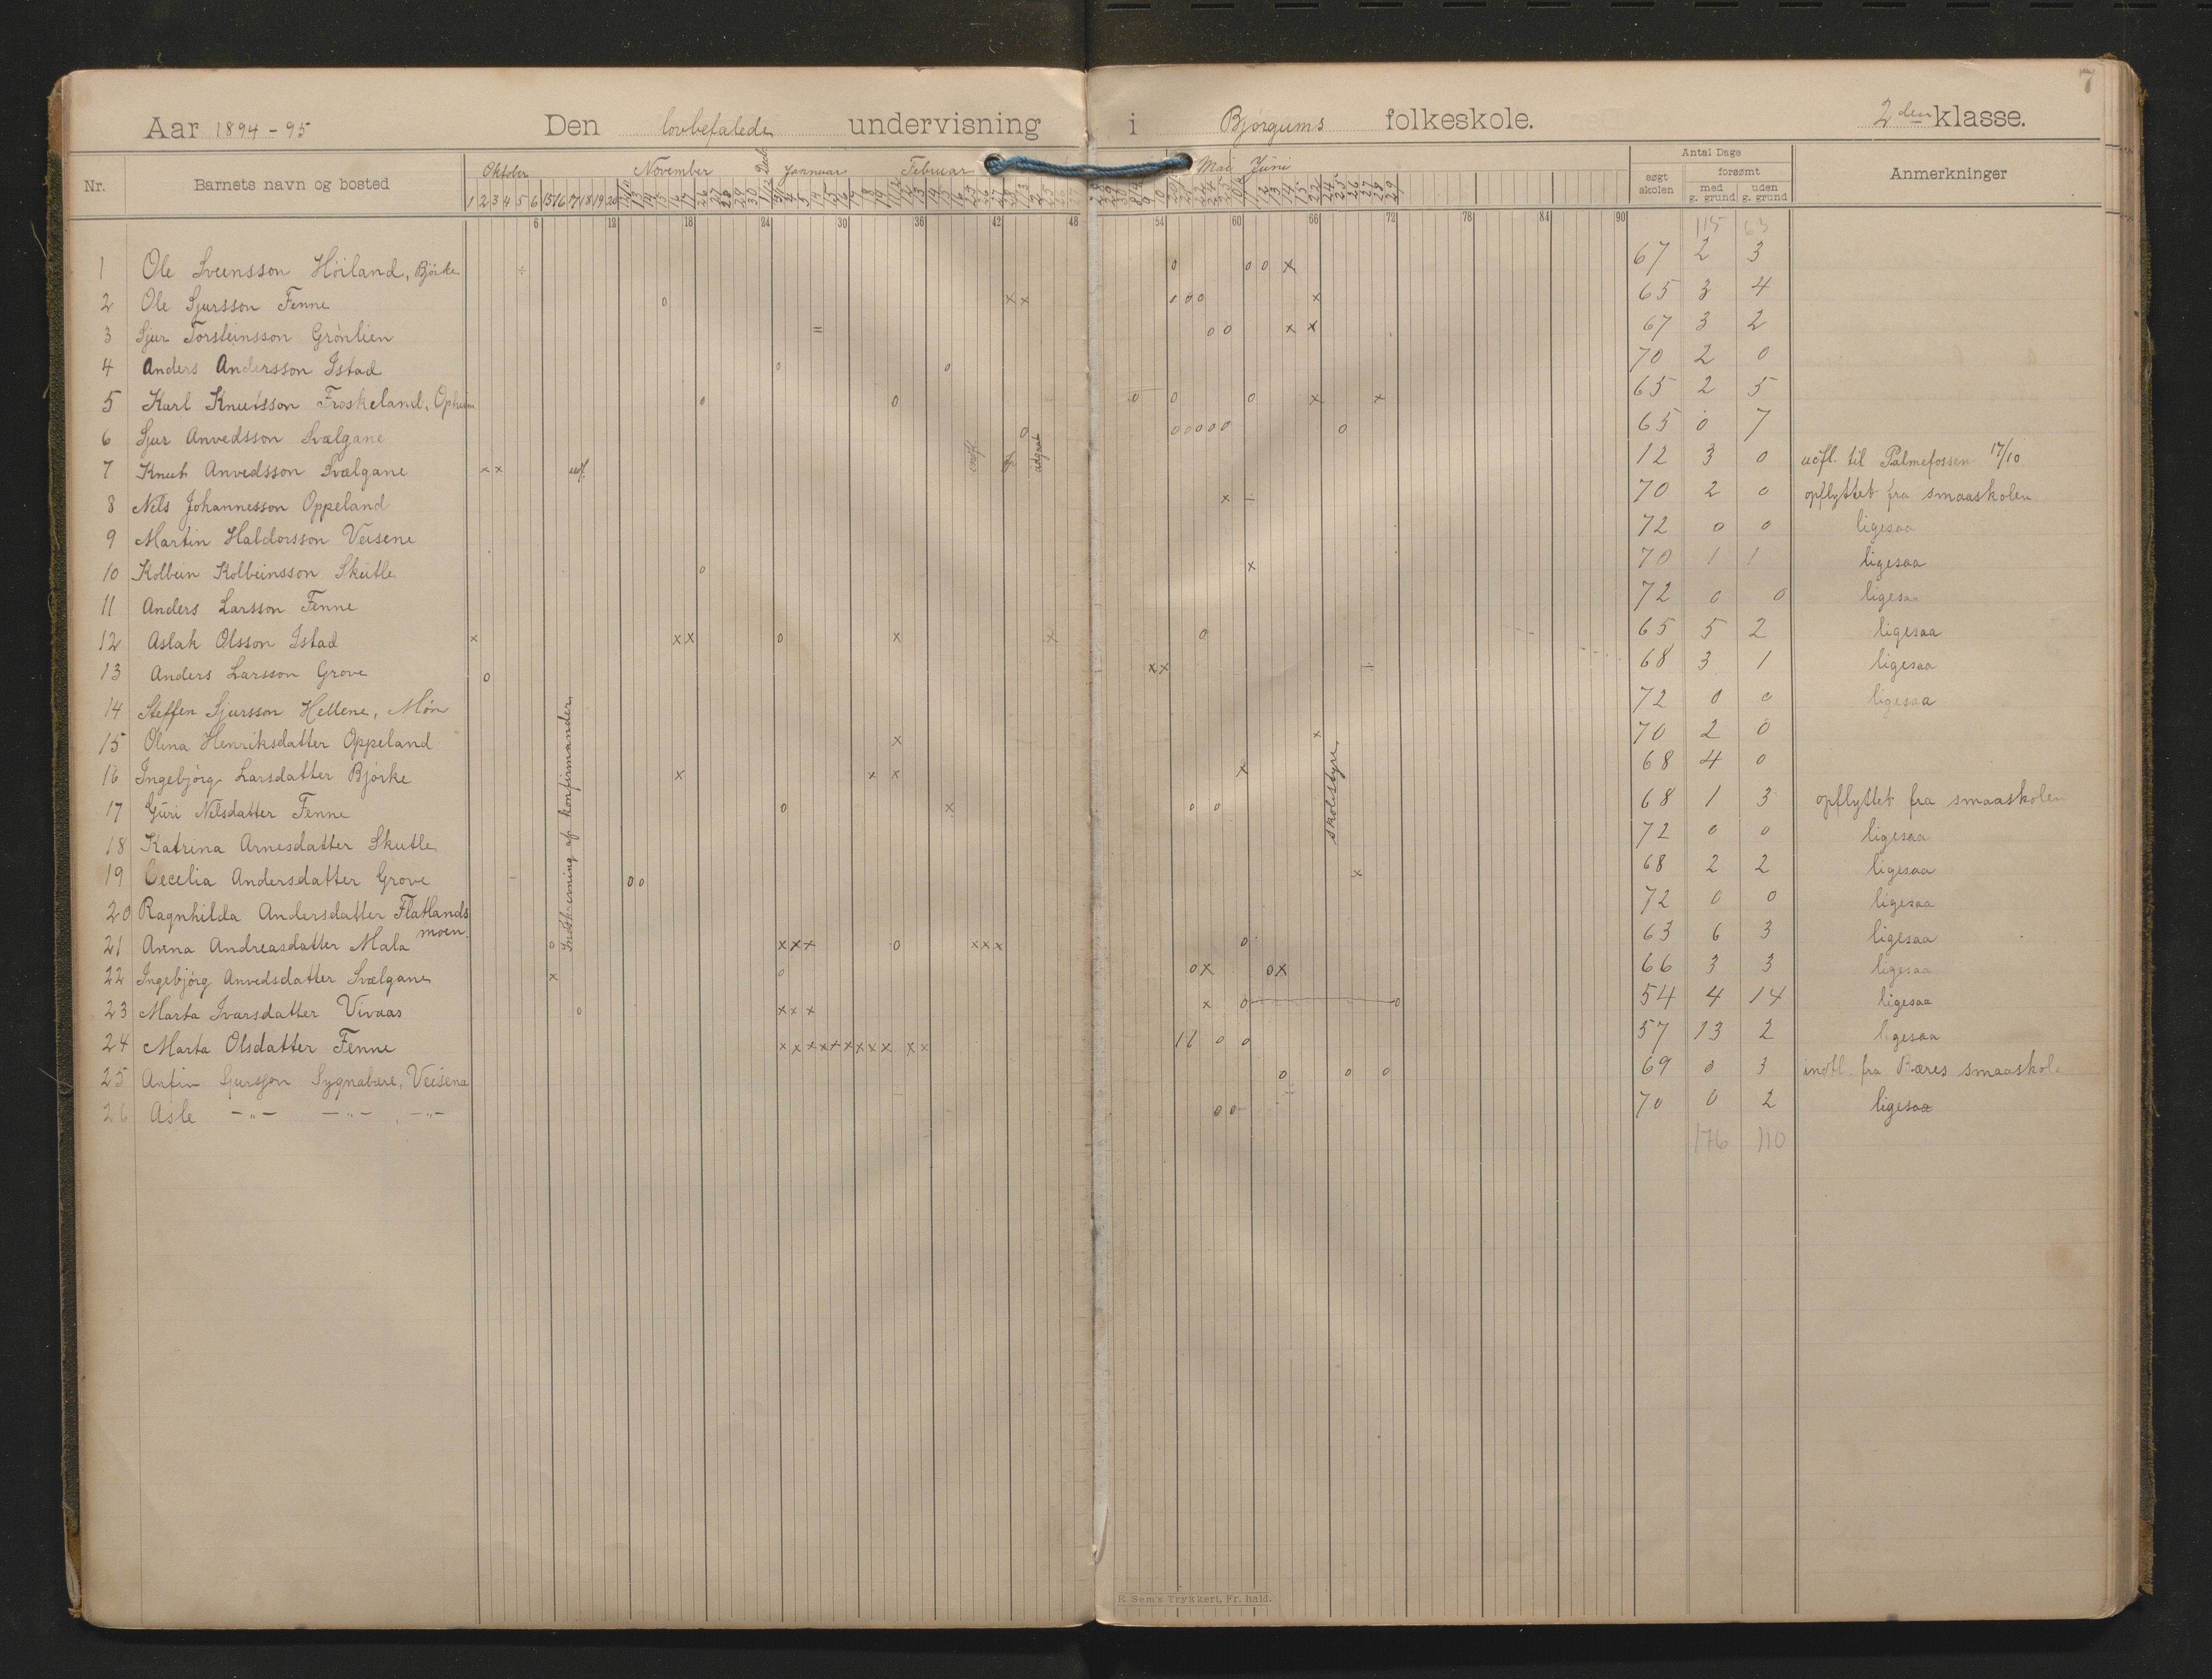 7
Aar 1894-95 Den lovbefalede undervisning i Bjørgums folkeskole. 2den klasse.
Nr. Barnets navn og bosted Oktober November Dec. Jannuar Februar Mai Juni Antal Dage søgt skolen forsømt med g. grund uden g. grund Anmerkninger
1 2 3 4 5 6 15 16 17 18 19 20
6 12 18 24 30 36 42 48 54 60 66 72 78 84 90
115 63
1 Ole Sveinsson Høiland, Bjørke 67 2 3
2 Ole Sjursson Fenne 65 3 4
3 Sjur Torsteinsson Grønlien 67 3 2
4 Anders Andersson Istad 70 2 0
5 Karl Knutsson Froskeland, Opheim 65 2 5
6 Sjur Anvedsson Svælgane 65 0 7
7 Knut Anvedsson Svælgane utf. 12 3 0 udfl. til Palmefossen 17/10
8 Nils Johannesson Oppeland 70 2 0 opflyttet fra smaaskolen
9 Martin Haldorsson Veisene 72 0 0 ligesaa
10 Kolbein Kolbeinsson Skutle 70 1 1 ligesaa
11 Anders Larsson Fenne 72 0 0 ligesaa
12 Aslak Olsson Istad 65 5 2 ligesaa
13 Anders Larsson Grove 68 3 1 ligesaa
14 Steffen Sjursson Hellene, Møn 72 0 0 ligesaa
15 Olina Henriksdatter Oppeland 70 2 0
16 Ingebjørg Larsdatter Bjørke 68 4 0
17 Guri Nilsdatter Fenne 68 1 3 opflyttet fra smaaskolen
18 Katrina Arnesdatter Skutle 72 0 0 ligesaa
19 Cecelia Andersdatter Grove 68 2 2 ligesaa
20 Ragnhilda Andersdatter Flatlands 72 0 0 ligesaa
moen.
21 Anna Andreasdatter Mala 63 6 3 ligesaa
22 Ingebjørg Anvedsdatter Svælgane 66 3 3 ligesaa
23 Marta Ivarsdatter Vivaas 54 4 14 ligesaa
24 Marta Olsdatter Fenne 57 13 2 ligesaa
25 Anfin Sjursson Sygnabære, Veisene 69 0 3 indfl. fra Bæres smaaskole
26 Asle -"- -"-, -"- 70 0 2 ligesaa
176 110
Indskrivning af konfirmander
skolestyre
E. Sem's Trykkeri, Fr. hald.